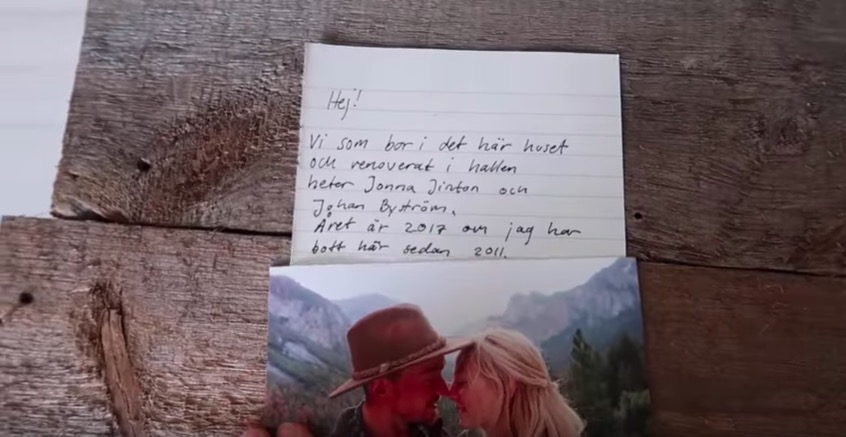 Hej!
Vi som bor i det här huset
och renoverat i hallen
heter Jonna Jinton och
Johan Byström.
Året är 2017 och jag har
bott här sedan 2011.